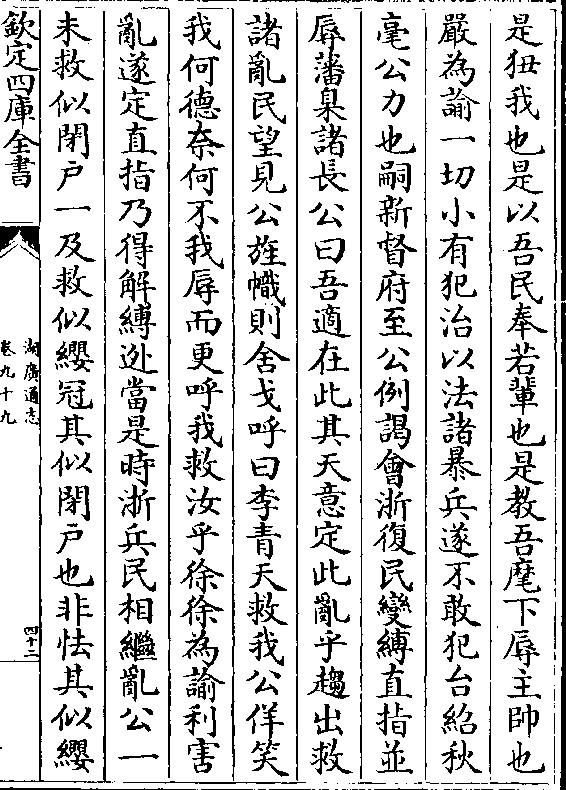 是狃我也是以吾民奉若輩也是教吾麾下辱主帥也
嚴為諭一切小有犯治以法諸暴兵遂不敢犯台紹秋
毫公力也嗣新督府至公例謁會浙復民變縛直指並
辱藩臬諸長公曰吾適在此其天意定此亂乎趨出救
諸亂民望見公旌幟則舍戈呼曰李青天救我公佯笑
我何德奈何不我辱而更呼我救汝乎徐徐為諭利害
亂遂定直指乃得解縛迯當是時浙兵民相繼亂公一
未救似閉户一及救似纓冠其似閉户也非怯其似纓
欽定四庫全書
湖廣通志
卷九十九
四十二